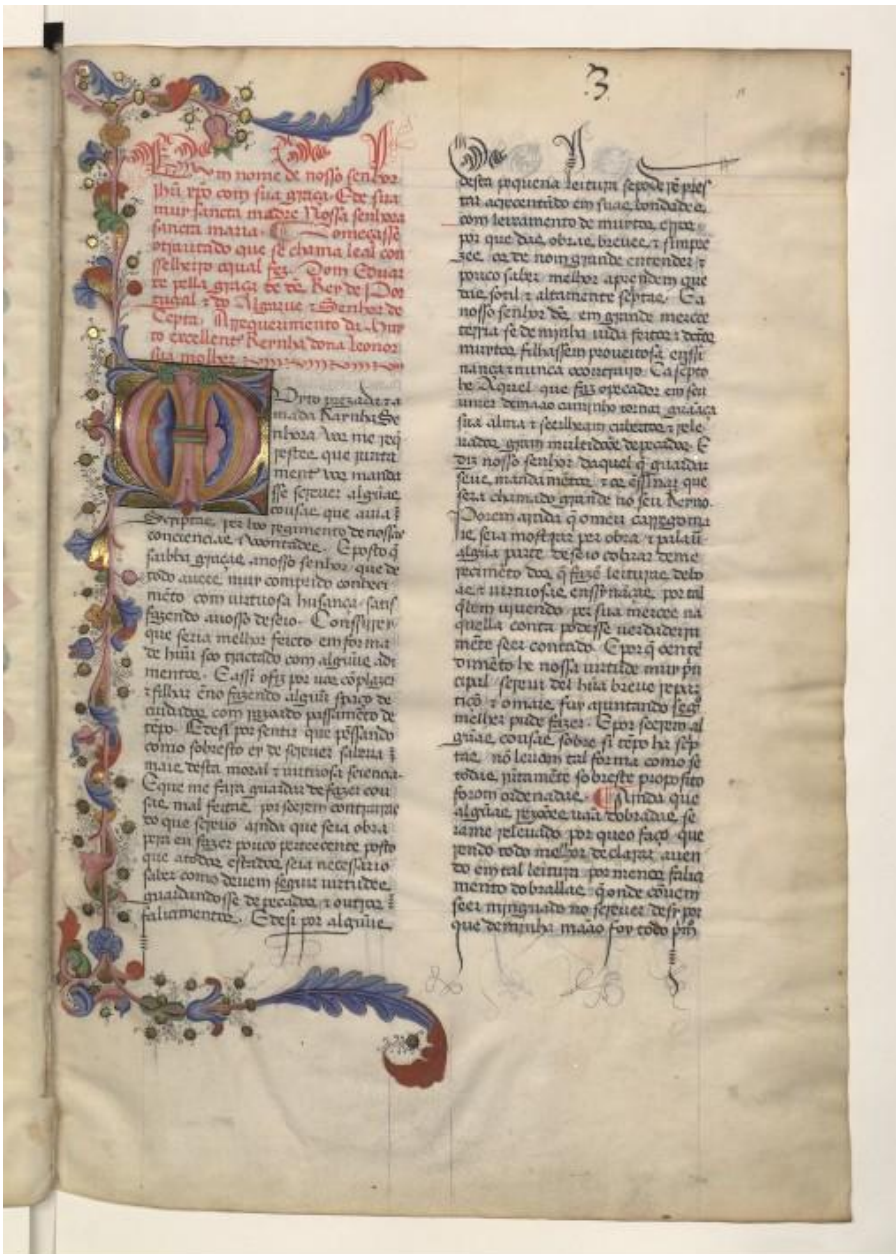 3
Em nome de nosso senhor
Jhũ xp̃o com sua graça. E de sua
muy sancta madre Nossa senhora
sancta maria. Começasse
o trautado que se chama leal con
sselheiro o qual fez. Dom Eduar
te pella graça de d̃s. Rey de Por
tugal & do Algarue & Senhor de
Cepta. A requerimento da Muy
to excellent Reynha dona Leonor
sua molher
Muyto prezada & a
mada Raynha Se
nhora. Vos me req̃
restes que junta
ment vos manda
sse screuer algũas
cousas que auia ∫
scriptas. per boo regimento de nossas
conciencias & voontades. E posto q̃
saibha graças a nosso senhor que de
todo auees muy comprido conheci
mẽto com uirtuosa husança. satis
fazendo a uosso deseio. Conssirey
que seria melhor feicto em forma
de hũu soo tractado com algũus adi
mentos. E assi o fiz por uos cõplazer
& filhar ẽno fazendo algũu spaço de
cuidados com rezoado passamẽto de
tẽpo. E desi por sentir que pẽssando
como sobresto ey de screuer saberia
mais desta moral & uirtuosa sciencia.
E que me fara guardar de fazer cou
sas mal feitas. por seerem contrairas
do que screuo ainda que seia obra
pera eu fazer pouco perteecente posto
que a todos estados seia necessario
saber como deuem seguir uirtudes
guardandosse de pecados & outros
falicimentos. E desi por algũus
desta pequena leitura se poderẽ pres
tar acrecentado em suas bondades
com leixamento de muytos erros
por que das obras breues & simpre
zes. os de nom grande entender &
pouco saber melhor aprendem que
das sotil & altamente scp̃tas. Ca
nosso senhor d̃s em grande mercee
terria se de minha uida feitos & dictos
muytos filhassem proueitosa enssi
nança & nunca o contrairo. Ca scp̃to
he Aquel que faz o pecador em seu
uiuer de maao caminho tornar guaãça
sua alma & se lhe cubertos & rele
uados gram multidõoe de pecados. E
diz nosso senhor daquel q̃ guardar
seus mandamẽtos & os essinar que
sera chamado grande no seu Reyno.
Porem ainda q̃ o meu carrego ma
is seia mostrar per obra q̃ palaura
algũa parte deseio cobrar deme
recimẽto dos q̃ fazẽ leituras de bo
as & uirtuosas enssynãças. por tal
q̃ bem uiuendo per sua mercee na
quella conta podesse uerdadeira
mẽte seer contado. E por q̃ o entẽ
dimẽto he nossa uirtude muy p̃n
cipal. screui del hũa breue repar
tiçõ & o mais fuy ajuntando segũ
melhor pude fazer. E por seerem al
gũas cousas sobre si tẽpo ha scp̃
tas. nõ leuam tal forma como se
todas jũtamẽte sobreste proposito
forom ordenadas. Ainda que
algũas rezões uaão dobradas se
iame releuado por que o faço que
rendo todo melhor declarar auen
do em tal leitura por menor falici
mento dobrallas q̃ onde cõuem
seer minguado no screuer desy por
que de minha maão foy todo p̃m